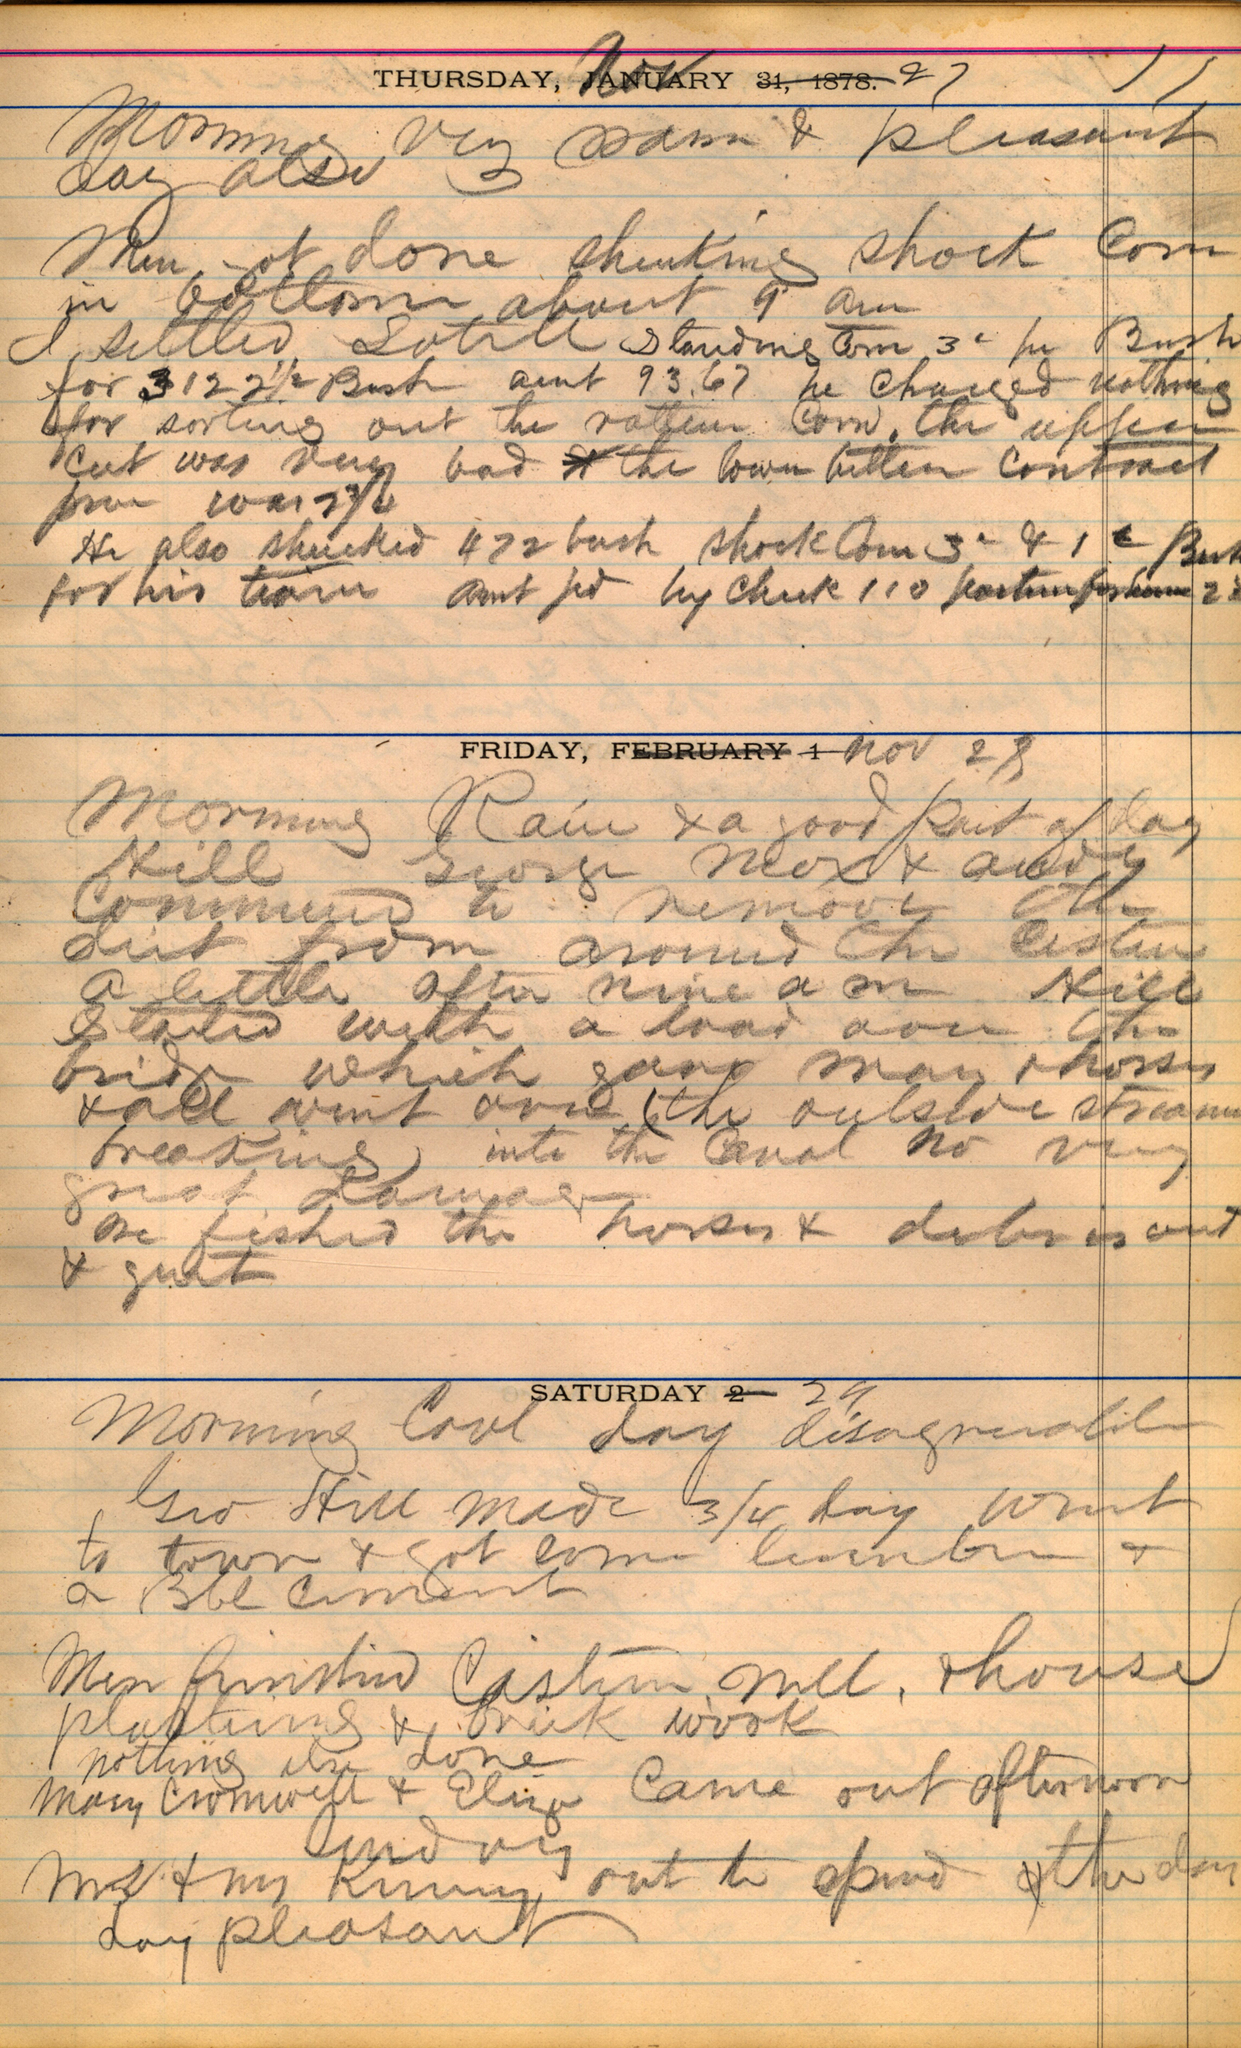 THURSDAY, JANUARY 31, 1878. Nov 27 11
Morning very warm & pleasant
day also
Men got done shucking shock Corn
in bottom about 9 am
I settled Standing Corn 3c per Bush
for 3122 1/2 Bush amt 93.67 he charged nothing
for sorting out the rotten Corn, the upper
Cut was very bad & the lower better Contract
price was 2 3/4
He also shucked 472 bush shock Corn 3c & 1c Bush
for his team amt pd by Check 110
FRIDAY, FEBRUARY 1 Nov 28
Morning Rain & a good part of day
Hill George Max & andy
Commencd to remove the
dirt from around the Cistern
a little after nine a m Hill
Started with a load over the
bridge which gave way & horses
& all went over (the outside stream
breaking) into the Canal no very
great damage
We fished the horses & debris out
& quit
SATURDAY 2 29
Morning Cool day disagreeable
Geo Hill made 3/4 day went
to town & got some lumber &
a Bbl Cement
Men finished Cistern well, & house
plastering & brick work
nothing else done
Mary Cromwell & Eliza Came out afternoon
Sunday
Mr & Mrs Kinney out to spend the day
day pleasant